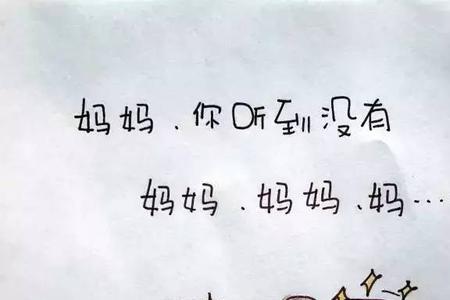 妈妈、你听到没有
妈妈、妈妈、妈…